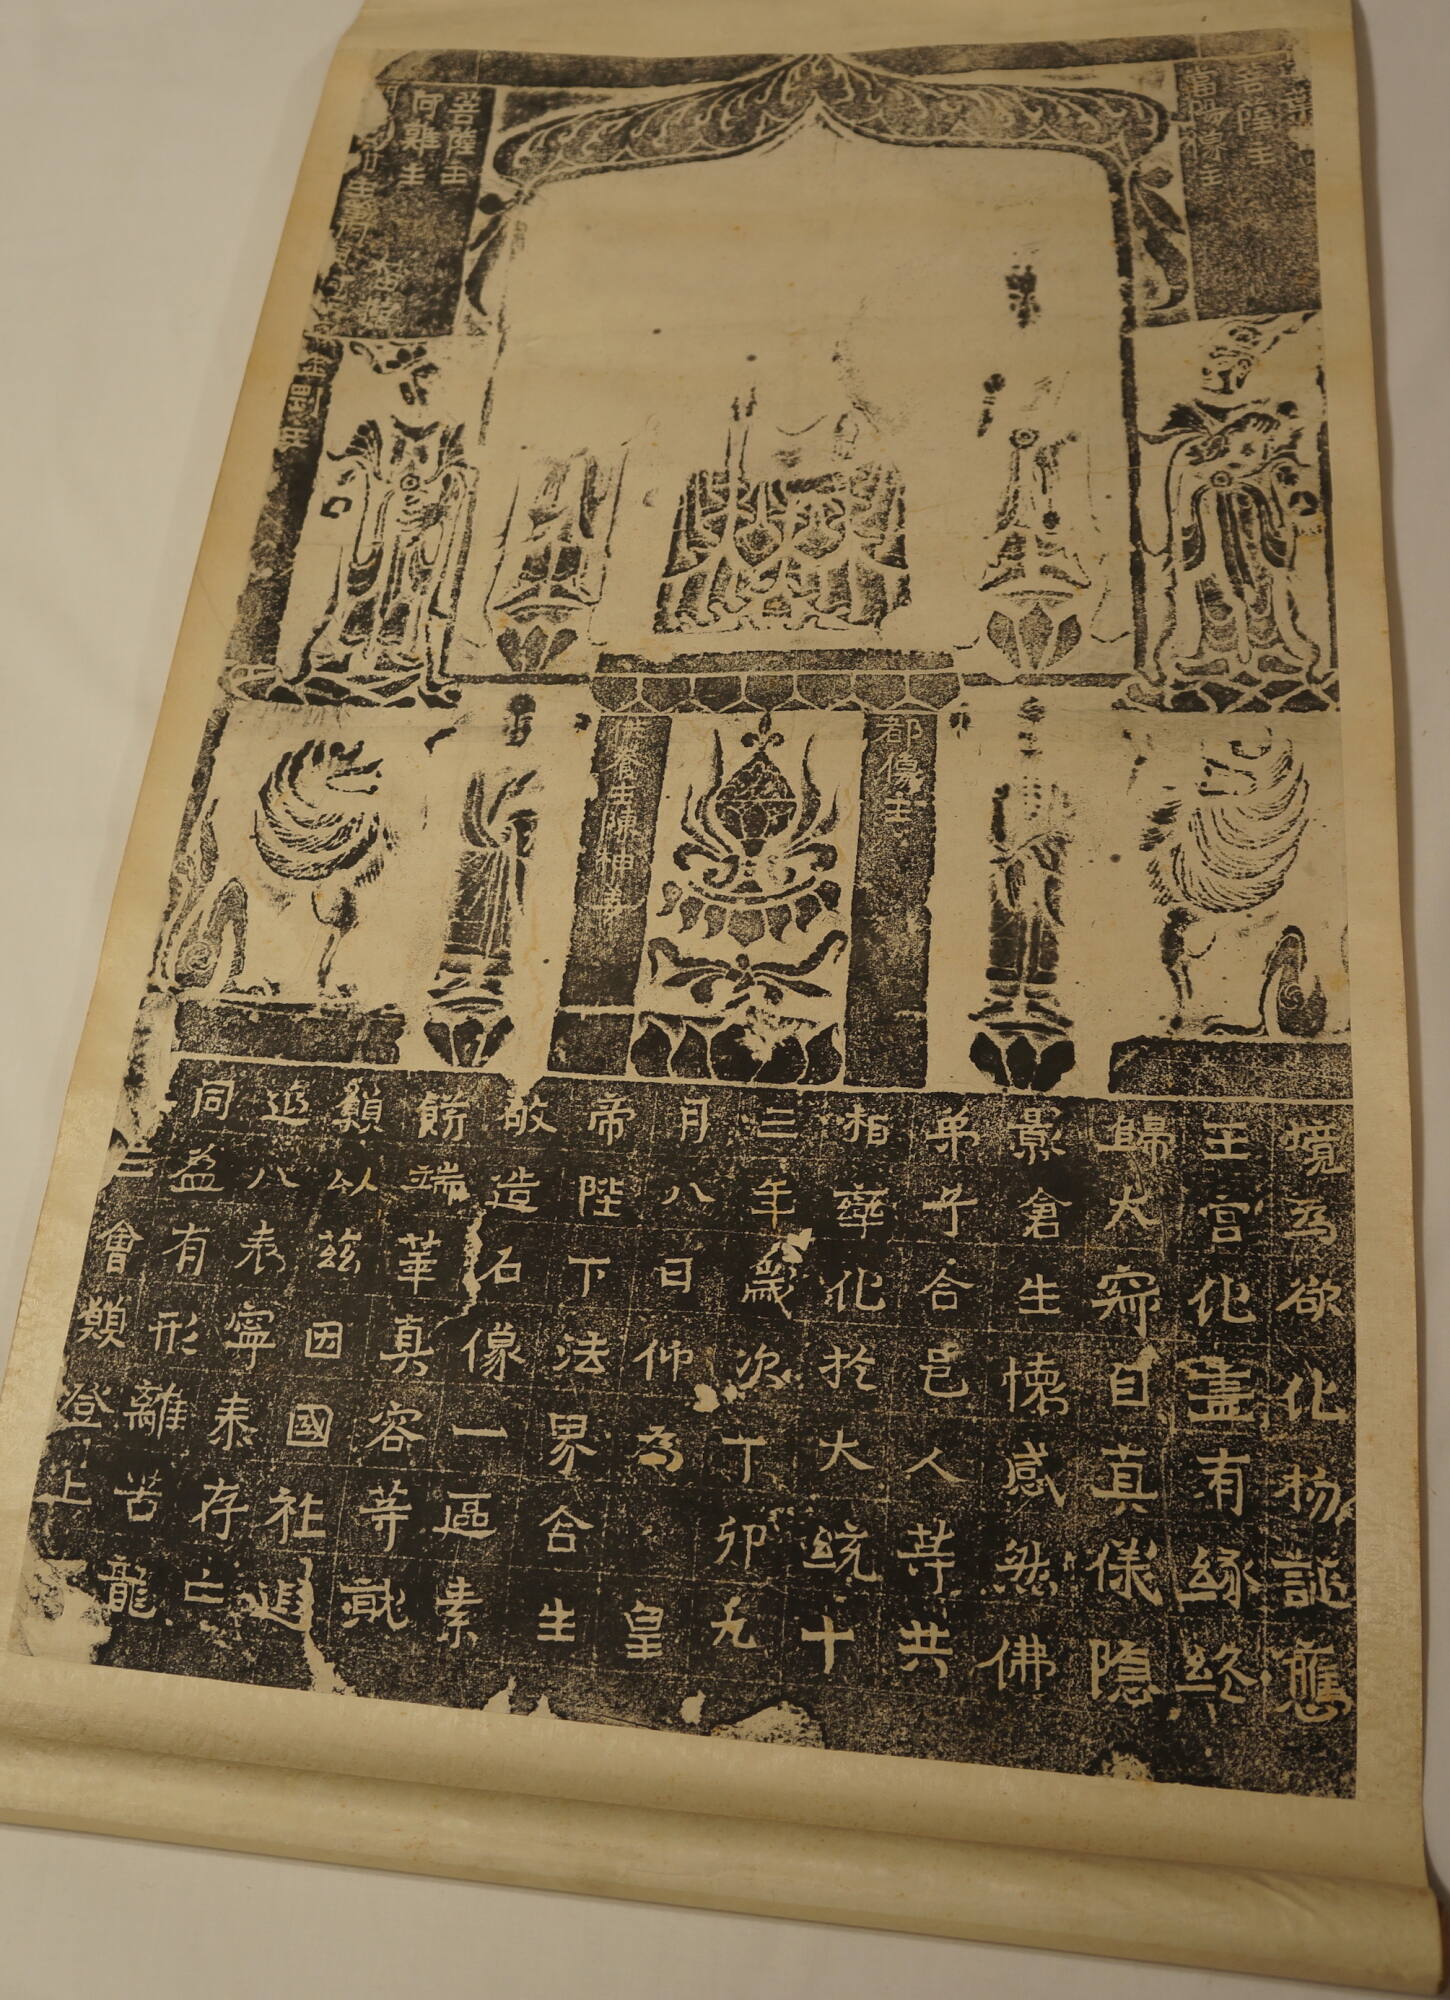 菩薩主
都像主
供養主陳神姜
菩薩主
阿難主
境為欲化物誕應
王宮化盡有緣終
歸大寂自真儀隱
景倉生懷感然佛
弟子合邑人等共
相率化於大統十
三年歲次丁卯九
月八日仰為皇
帝陛下法界含生
敬造石像一區素
餝端華真容等就
願以茲因國祚遐
延八表寧泰存亡
同益有形離苦龍
三會願登上